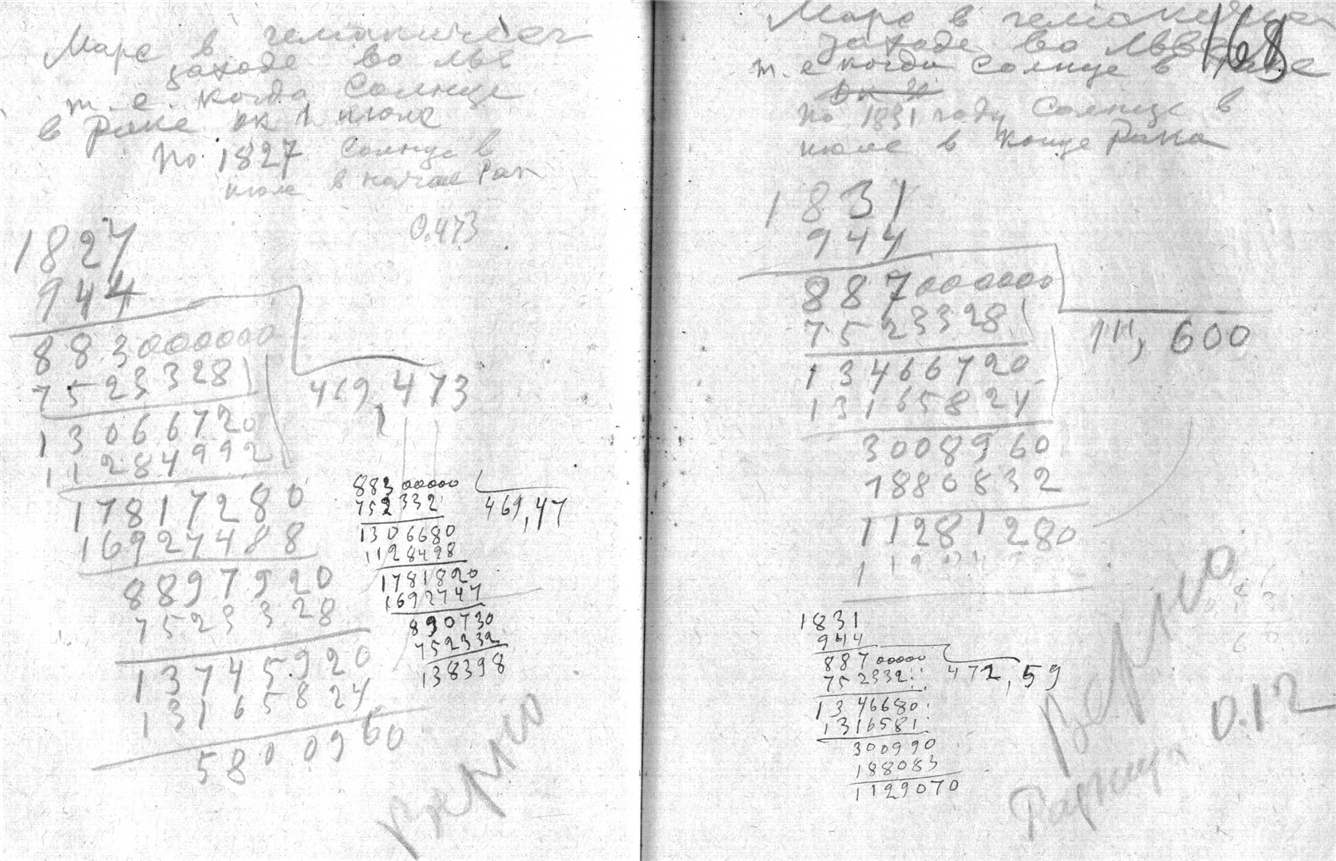 Марс в гелиакичес
заходе во льве
т. е. когда Солнце
в Раке ок 1 июле
по 1827 Солнце в
июле в начале Рак
0.473
1827
944
883000000
469,473
7523328
13066720
11284992
17817280
16927488
8897920
7523328
13745920
13165824
5800960
88300000
469,47
752332
1306680
1128498
1781820
1692747
890730
752332
138398
Верно
168
Марс в гелиакичес
заходе во Льве
т. е когда Солнце в Раке
по 1831 году Солнце в
июле в конце Рака
1831
944
887000000
600
7523328
13466720
13165824
3008960
1880832
11281280
1831
944
88700000
472,59
752332
1346680
1316581
300990
188083
1129070
Верно
Разница 0.12